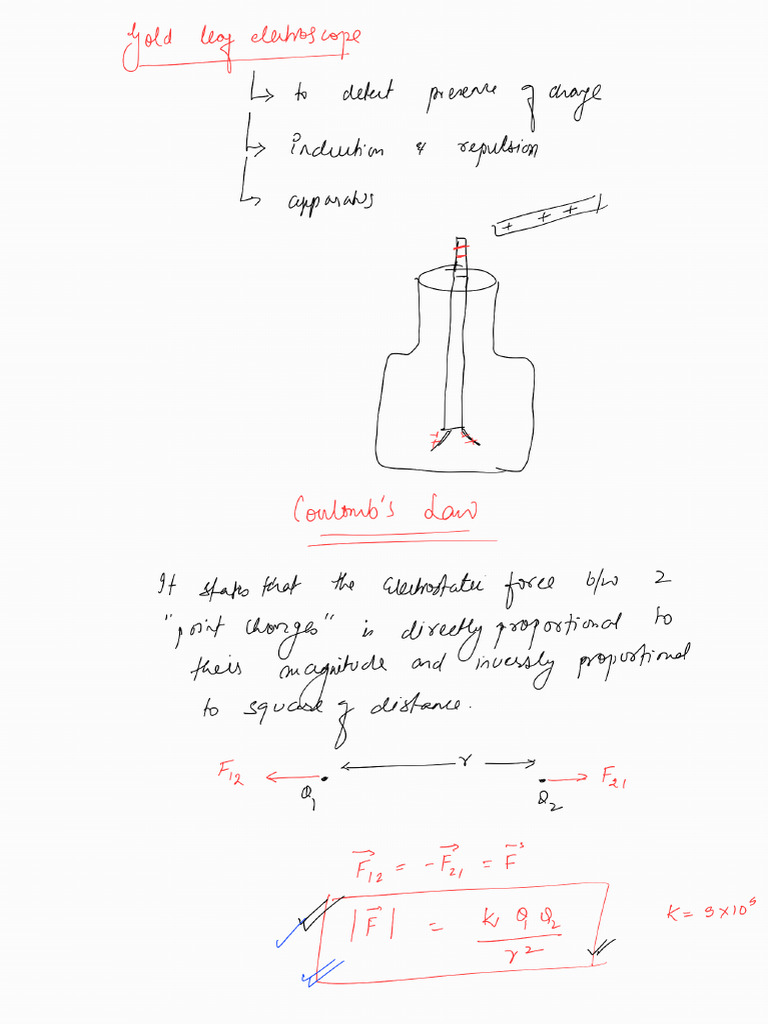 Gold leaf electroscope
to detect presence of charge
induction & repulsion
apparatus
+ + +
Coulomb's Law
It stats that the Electrostatic force b/w 2
"point charges" is directly proportional to
their magnitude and inversly proportional
to square of distance.
F12 Q1 r Q2 F21
F12 = -F21 = F
|F| = k Q Q2 / r²
K = 9×10⁹